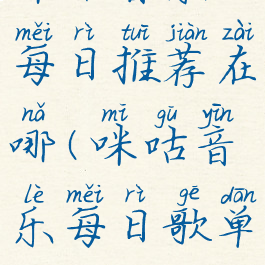 měi rì tuī jiàn zài
每日推荐在
nǎ mī gū yīn
哪(咪咕音
lè měi rì gē dān
乐每日歌单